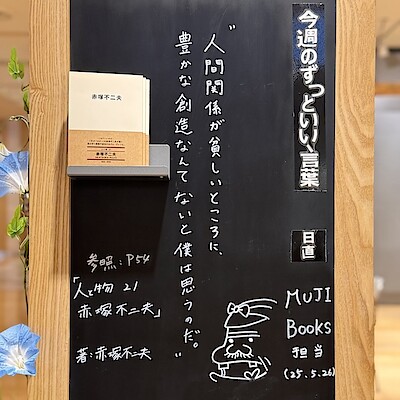 今週のずっといい言葉
日直
MUJI
Books
担当
(25.5.26)
"人間関係が貧しいところに、
豊かな創造なんてないと僕は思うのだ。"
参照:P54
「人と物 21
赤塚不二夫」
著:赤塚不二夫
赤塚不二夫
赤塚不二夫